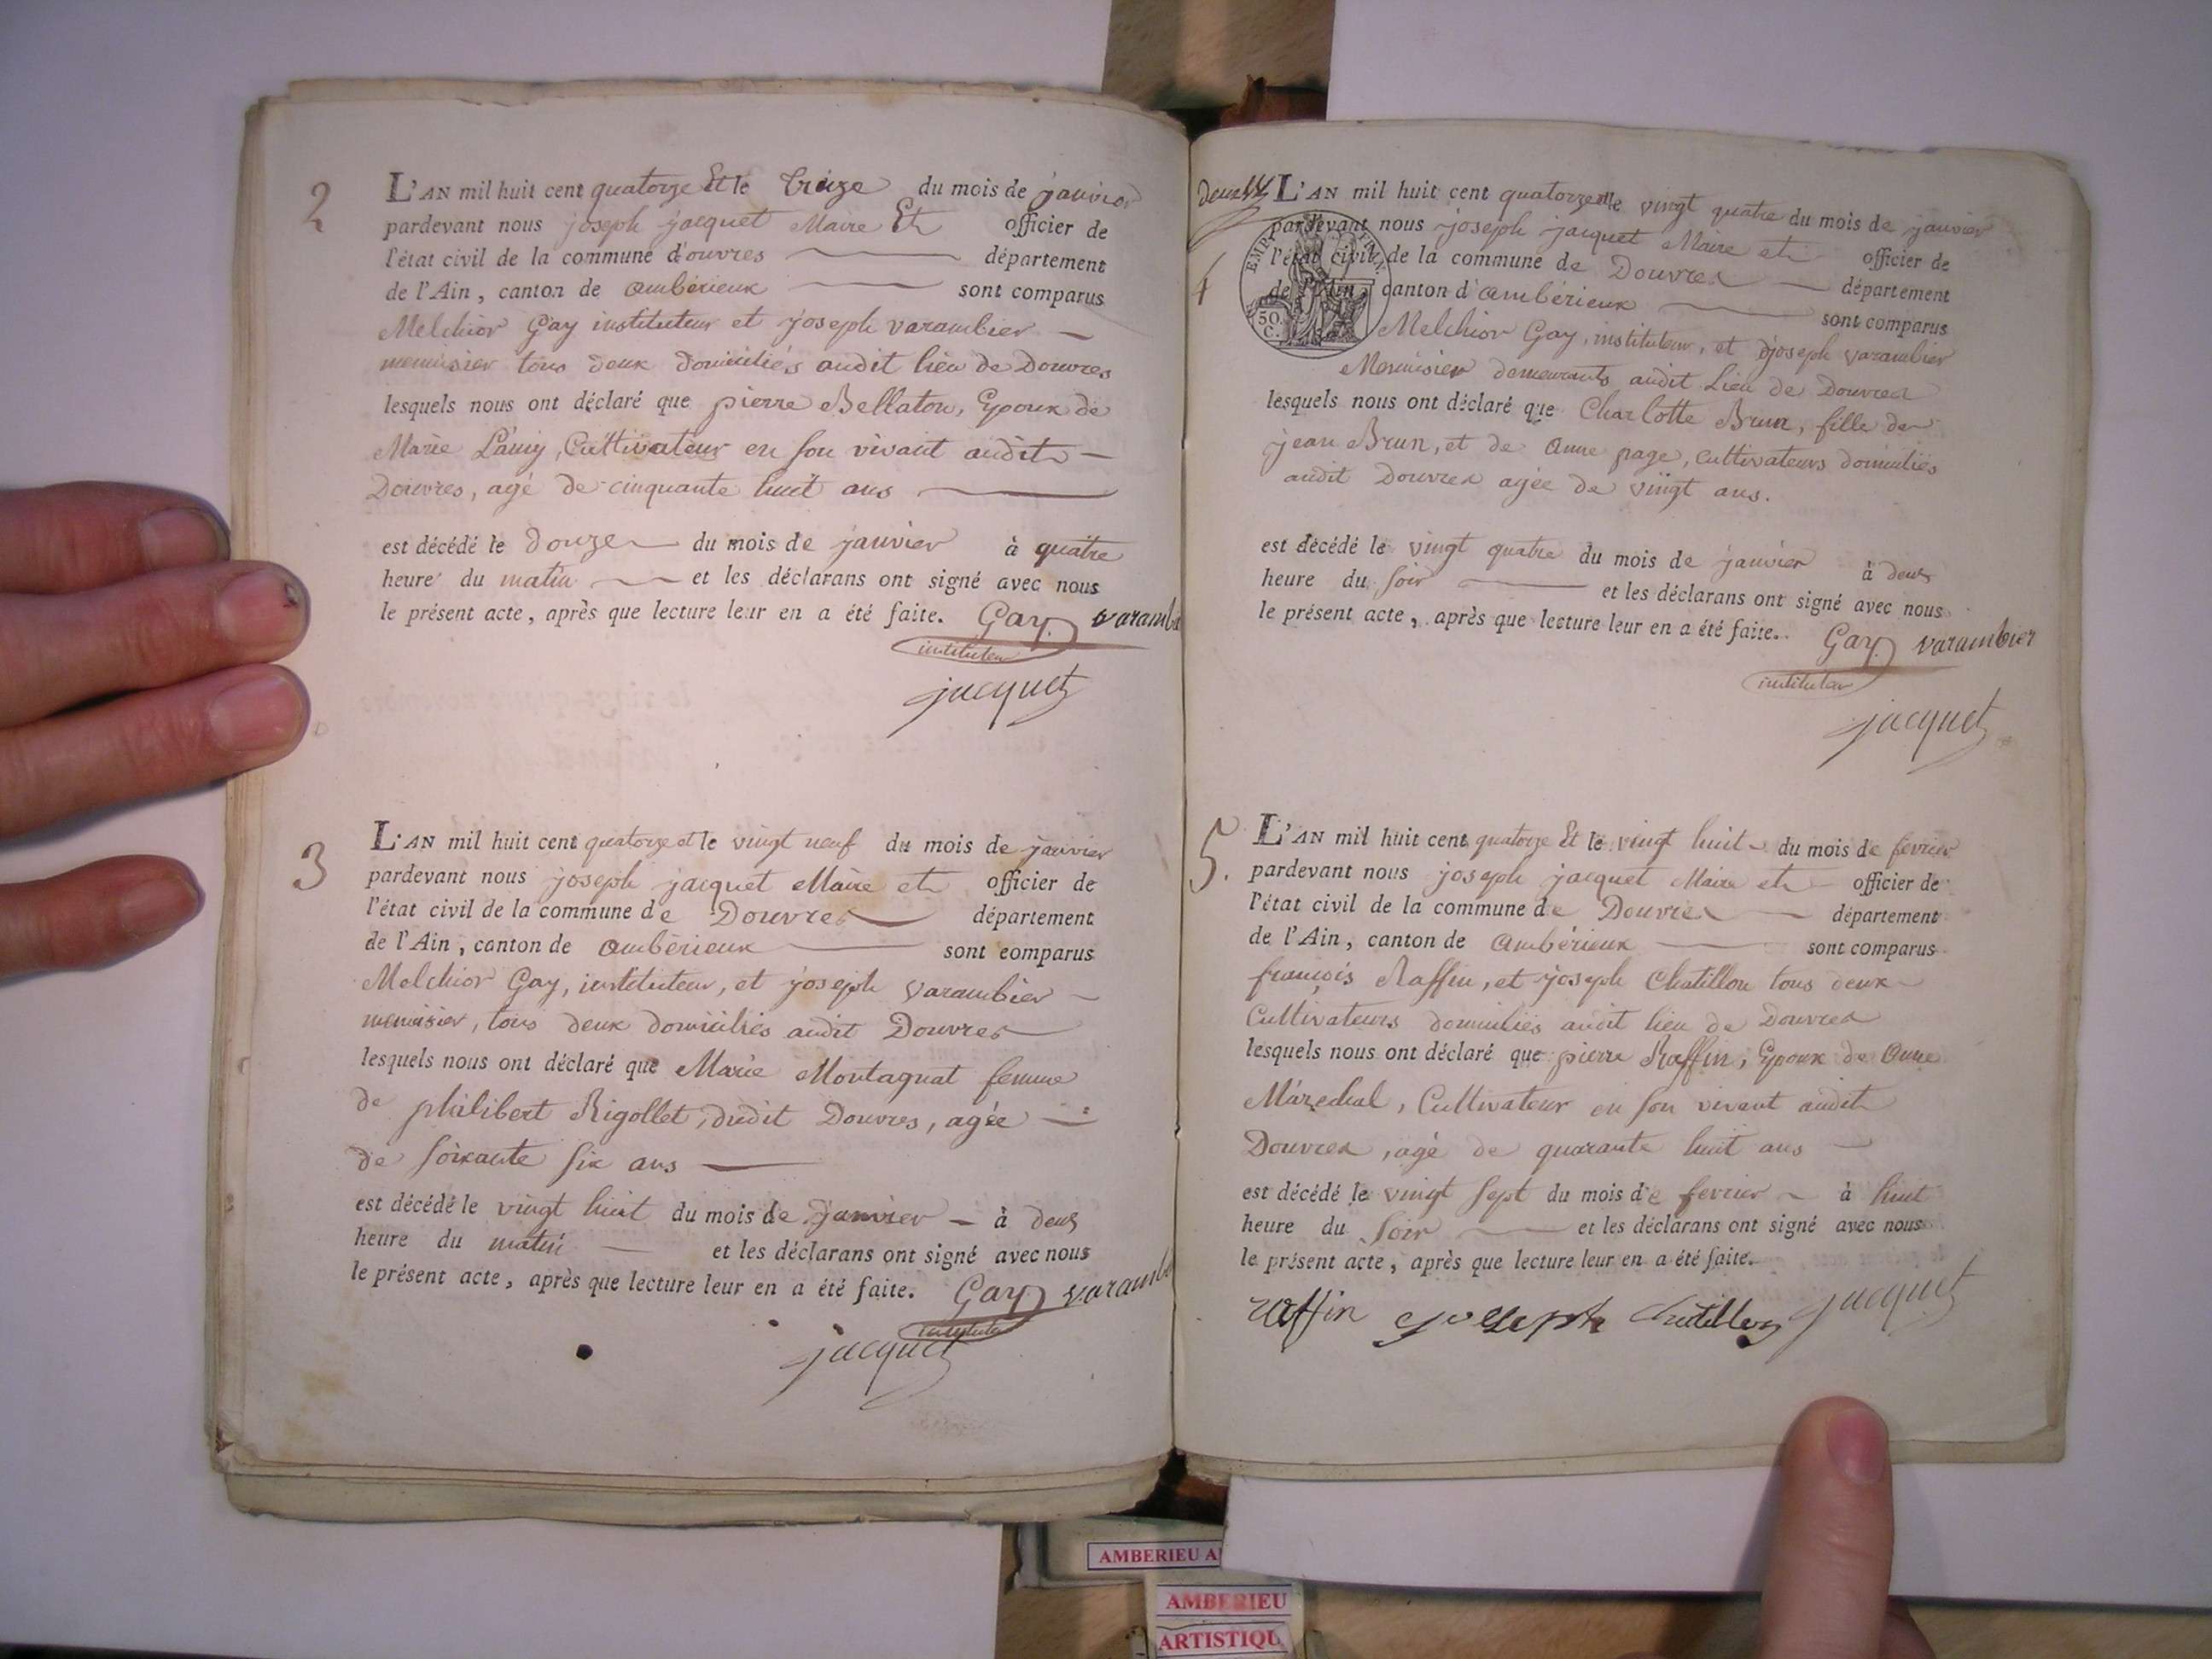 2
L'AN mil huit cent quatorze Et le treize du mois de janvier
pardevant nous joseph jacquet Maire Et officier de
l'état civil de la commune d'ouvres département
de l'Ain, canton de ambérieux sont comparus
Melchior Gay instituteur et joseph varambier
menuisier tous deux domiciliés audit lieu de Douvres
lesquels nous ont déclaré que pierre Bellaton, Epoux de
Marie Lániy, Cultivateur en son vivant audit
Douvres, agé de cinquante huit ans
est décédé le douze du mois de janvier à quatre
heure du matin et les déclarans ont signé avec nous
le présent acte, après que lecture leur en a été faite. Gay varambi
instituteur
jacquet
3
L'AN mil huit cent quatorze et le vingt neuf du mois de janvier
pardevant nous joseph jacquet Maire et officier de
l'état civil de la commune de Douvres département
de l'Ain, canton de ambérieux sont comparus
Melchior Gay, instituteur, et joseph varambier
menuisier, tous deux domiciliés audit Douvres
lesquels nous ont déclaré que Marie Montagnat femme
de philibert Rigollet, dudit Douvres, agée
de soixante six ans
est décédé le vingt huit du mois de janvier à deux
heure du matin et les déclarans ont signé avec nous
le présent acte, après que lecture leur en a été faite. Gay varambi
instituteur
jacquet
4
L'AN mil huit cent quatorze et le vingt quatre du mois de janvier
pardevant nous joseph jacquet Maire et officier de
l'état civil de la commune de Douvres département
de l'Ain, canton d'ambérieux sont comparus
50 C.
Melchior Gay, instituteur, et joseph varambier
Menuisier demeurants audit Lieu de Douvres
lesquels nous ont déclaré que Charlotte Brun, fille de
jean Brun, et de anne page, cultivateurs domiciliés
audit Douvres agée de vingt ans.
est décédé le vingt quatre du mois de janvier à deux
heure du soir et les déclarans ont signé avec nous
le présent acte, après que lecture leur en a été faite. Gay varambier
instituteur
jacquet
5.
L'AN mil huit cent quatorze Et le vingt huit du mois de fevrier
pardevant nous joseph jacquet Maire et officier de
l'état civil de la commune de Douvres département
de l'Ain, canton de ambérieux sont comparus
françois Raffin, et joseph Chatillon tous deux
Cultivateurs domiciliés audit lieu de Douvres
lesquels nous ont déclaré que pierre Raffin, Epoux de anne
Maréchal, Cultivateur en son vivant audit
Douvres, agé de quarante huit ans
est décédé le vingt sept du mois de fevrier à huit
heure du soir et les déclarans ont signé avec nous
le présent acte, après que lecture leur en a été faite.
raffin joseph chatillon jacquet
AMBERIEU A
AMBERIEU
ARTISTIQU